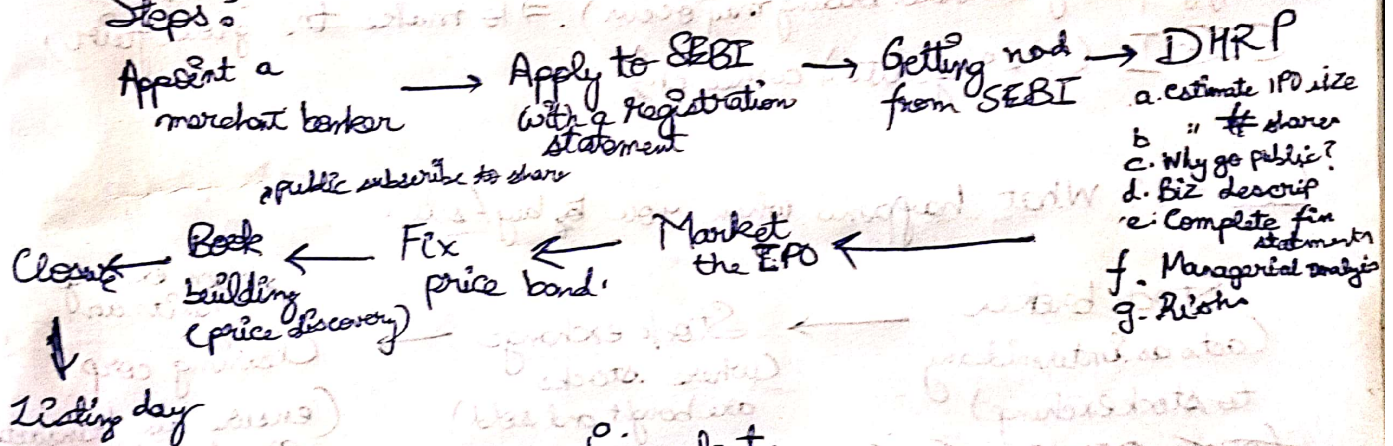 Steps:
Appoint a
merchant banker
→ Apply to SEBI
with a registration
statement
→ Getting nod
from SEBI
→ DHRP
a. estimate IPO size
b " # shares
c. Why go public?
d. Biz descrip
e. Complete fin
statments
f. Managerial analysis
g. Risks
← Market
the IPO
← Fix
price band.
public subscribe to share
← Book
building
(price discovery)
← Closure
↓
Listing day